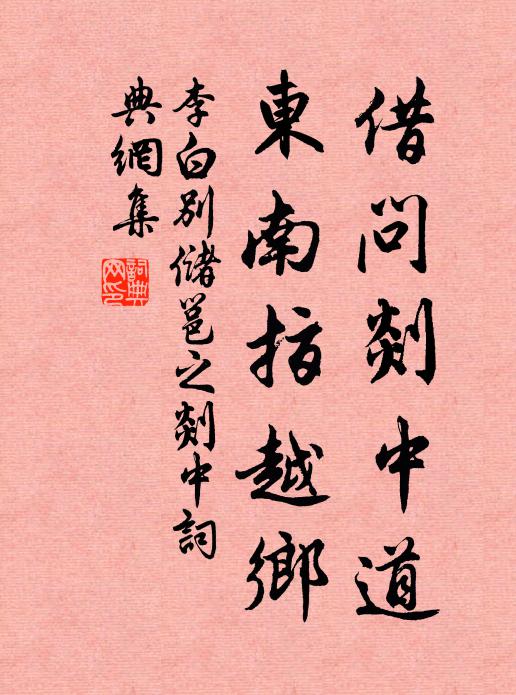 借問剡中道
東南指越鄉
李白別儲邕之剡中詞
典網集
詞典
网印